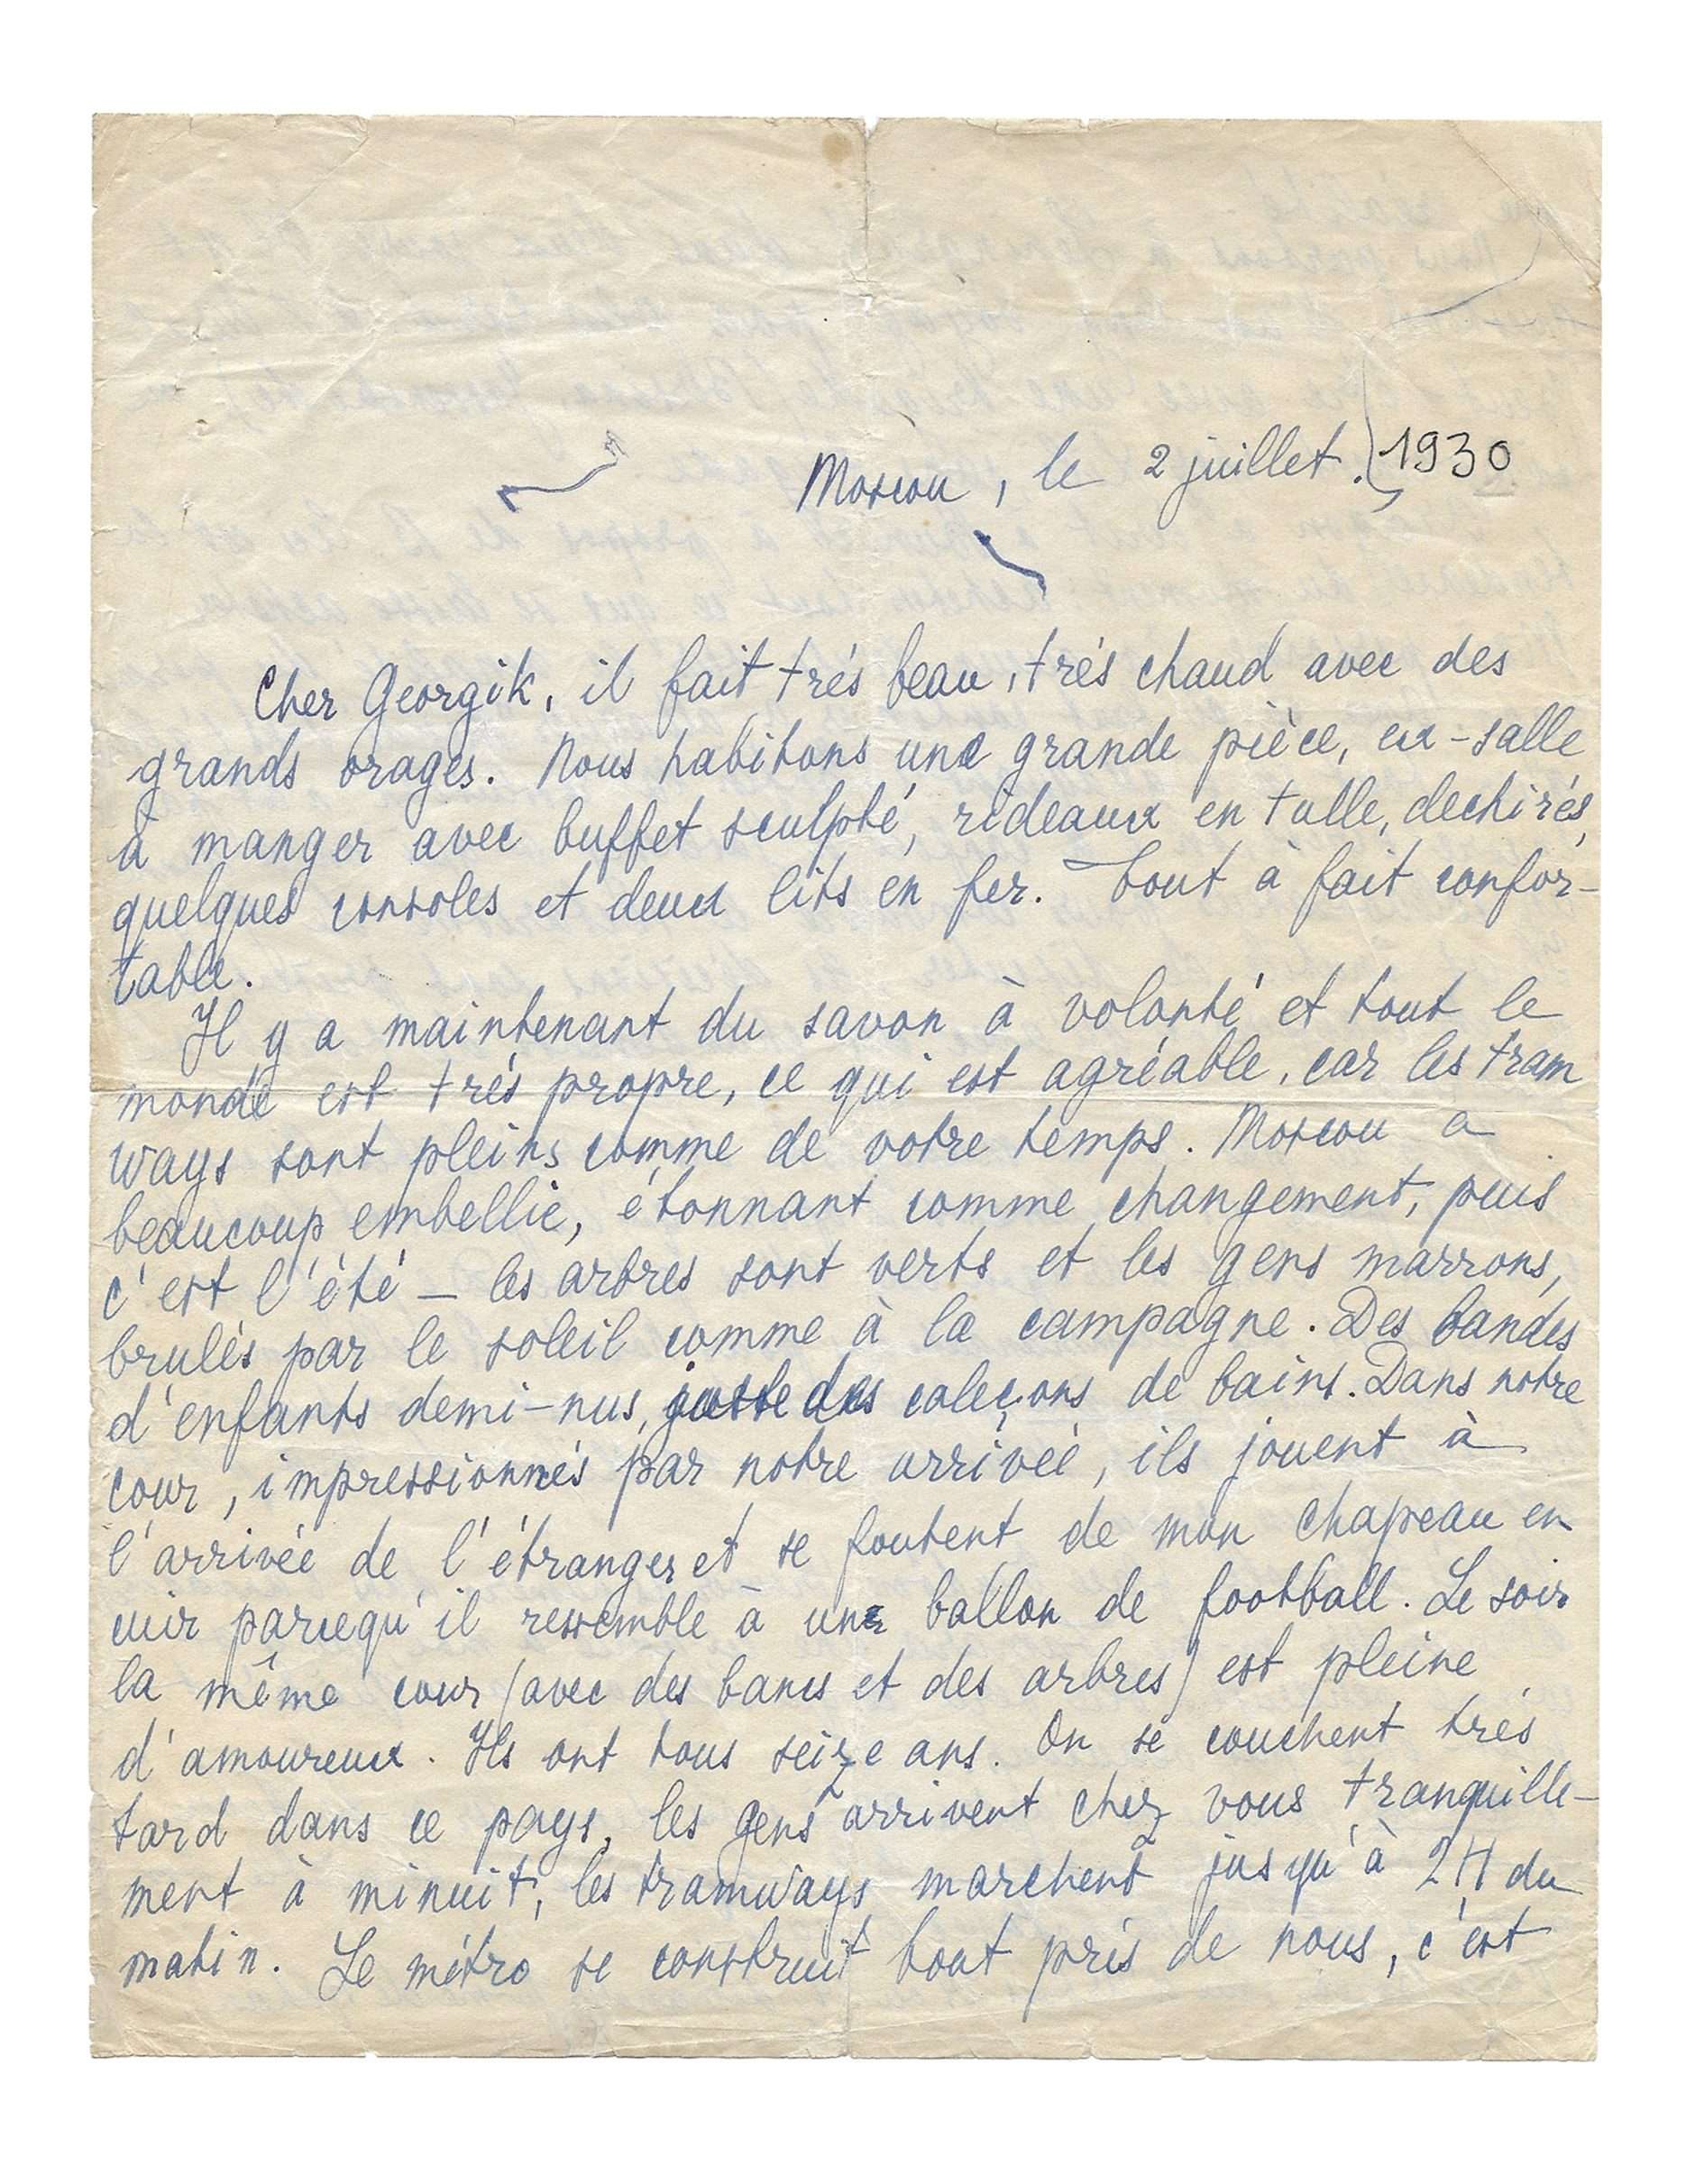 Moscou, le 2 juillet. 1930
Cher Georgik, il fait trés beau, trés chaud avec des
grands orages. Nous habitons une grande pièce, ex-salle
à manger avec buffet sculpté, rideaux en tulle, dechirés,
quelques consoles et deux lits en fer. Tout à fait confor-
table.
Il y a maintenant du savon à volonté et tout le
monde est trés propre, ce qui est agréable, car les tram
ways sont pleins comme de votre temps. Moscou a
beaucoup embellie, étonnant comme changement, puis
c'est l'été – les arbres sont verts et les gens marrons,
brulés par le soleil comme à la campagne. Des bandes
d'enfants demi-nus, juste des caleçons de bains. Dans notre
cour, impressionnés par notre arrivée, ils jouent à
l'arrivée de l'étranger et se foutent de mon chapeau en
cuir parcequ'il ressemble à un ballon de football. Le soir
la même cour (avec des bancs et des arbres) est pleine
d'amoureux. Ils ont tous seize ans. On se couchent trés
tard dans ce pays, les gens arrivent chez vous tranquille-
ment à minuit, les tramways marchent jusqu'à 2H du
matin. Le métro se construit tout prés de nous, c'est